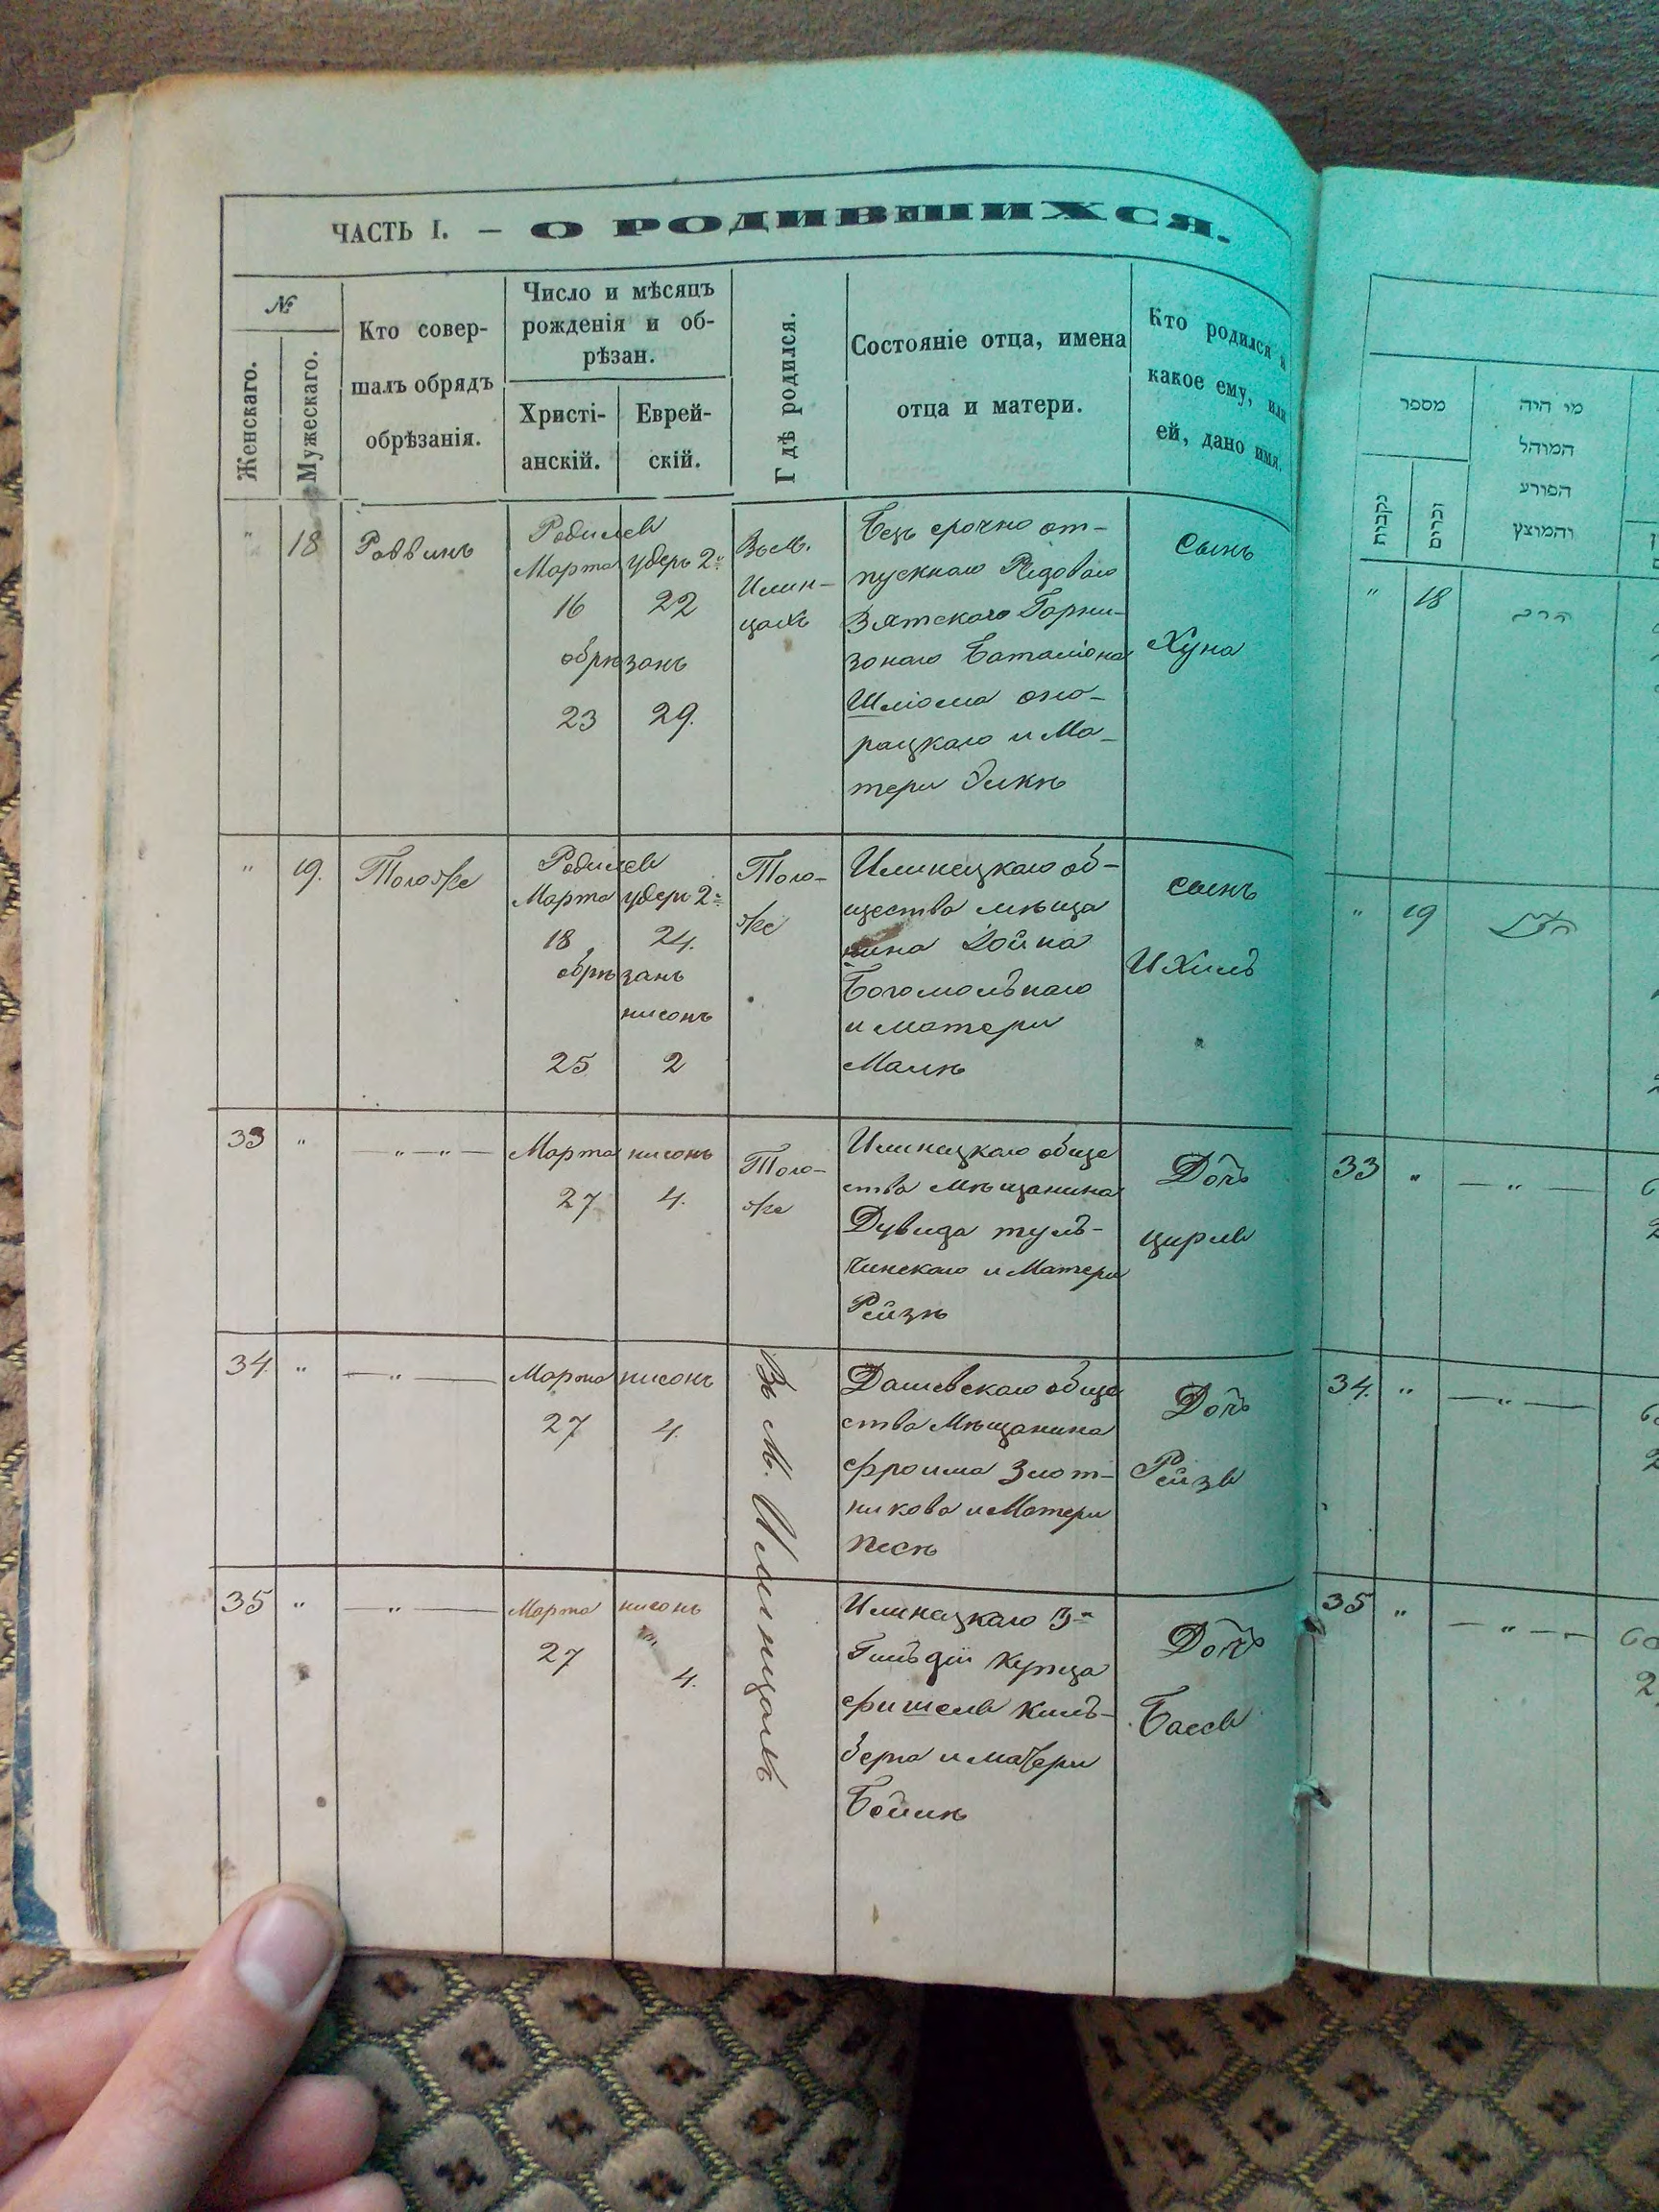 ЧАСТЬ I. — О РОДИВШИХСЯ.
№
Женскаго.
Мужескаго.
Кто совер-
шалъ обрядъ
обрѣзанія.
Число и мѣсяцъ
рожденія и об-
рѣзан.
Христі-
анскій.
Еврей-
скій.
Гдѣ родился.
Состояніе отца, имена
отца и матери.
Кто родился и
какое ему, или
ей, дано имя.
" 18 Раввинъ
Родился
Марта удеръ 2й
16 22
обрѣзанъ
23 29.
Въ м.
Илин-
цахъ
Безъ срочно от-
пускнаго Рядоваго
Вятскаго Гарни-
зонаго Баталіона
Шліома
рацкаго и Ма-
тери Элкѣ
Сынъ
Хуна
" 19. Тогоже
Родился
Марта удеръ 2й
18 24.
обрѣзанъ
нисонъ
25 2
Того-
же
Илинецкаго об-
щества мѣща
нина Дойна
Богомольнаго
и матери
Малкѣ
сынъ
Ихилъ
33 " — " — " —
Марта нисонъ
27 4.
Того-
же
Илинецкаго обще
ства Мѣщанина
Дувида туль-
чинскаго и Матери
Рейзѣ
Дочь
цирля
34. " — " —
Марта нисонъ
27 4.
Въ М. Илинцахъ
Дашевскаго обще
ства Мѣщанина
Фроима Злот-
никова и Матери
Песѣ
Дочь
Рейзя
35 " — " —
Марта нисонъ
27 4.
Илинецкаго 3й
Гильдіи Купца
Фишеля Киль-
и матери
Бейлѣ
Дочь
Бася
מספר
נקבות
זכרים
מי היה
המוהל
הפורע
והמוצץ
" 18 הרב
" 19
33 " — " —
34. " — " —
35 " — " —